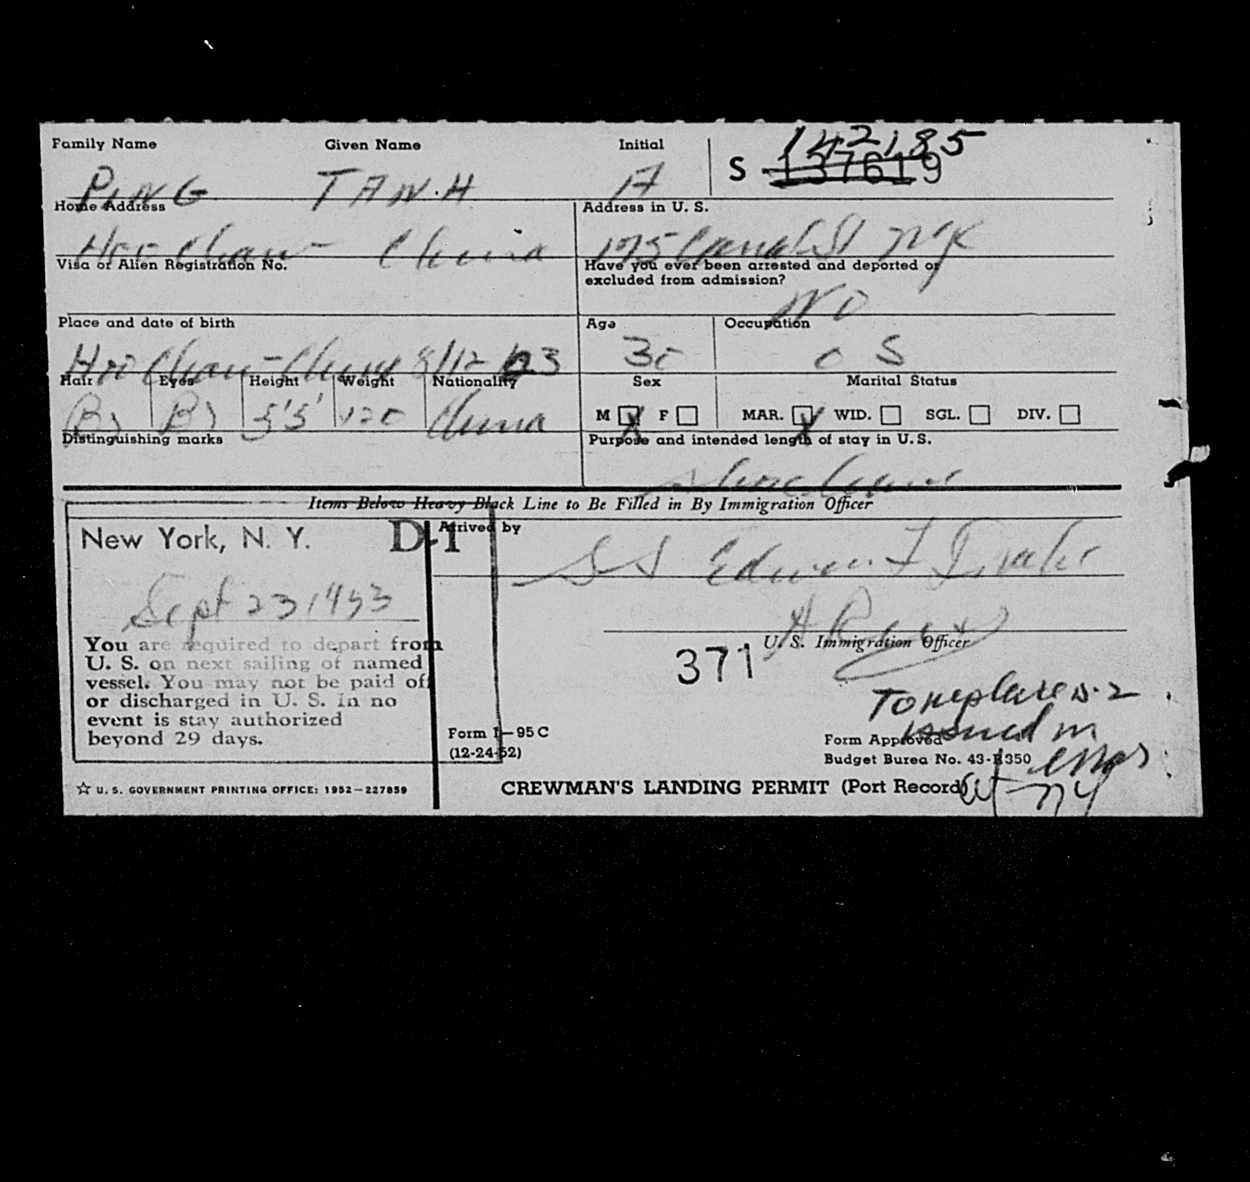 Family Name Given Name Initial
142185
S 137619
PING TAN. H A
Home Address Address in U. S.
Hoo Chaw China 175 Canal St NY
Visa or Alien Registration No. Have you ever been arrested and deported or
excluded from admission?
NO
Place and date of birth Age Occupation
Hoo Chaw - China 8/12/23 30 O S
Hair Eyes Height Weight Nationality Sex Marital Status
5'5' 120 China M X F MAR. X WID. SGL. DIV.
Distinguishing marks Purpose and intended length of stay in U. S.
Shore leave
Items Below Heavy Black Line to Be Filled in By Immigration Officer
New York, N. Y. D-1 Arrived by
SS Edwin
Sept 23 1953
U. S. Immigration Officer
You are required to depart from
U. S. on next sailing of named
vessel. You may not be paid off
or discharged in U. S. In no
event is stay authorized
beyond 29 days.
371
To replace D-2
issued in
error
at NY
Form I-95 C
(12-24-52)
Form Approved
Budget Burea No. 43-R350
☆ U. S. GOVERNMENT PRINTING OFFICE: 1952-227859
CREWMAN'S LANDING PERMIT (Port Record)